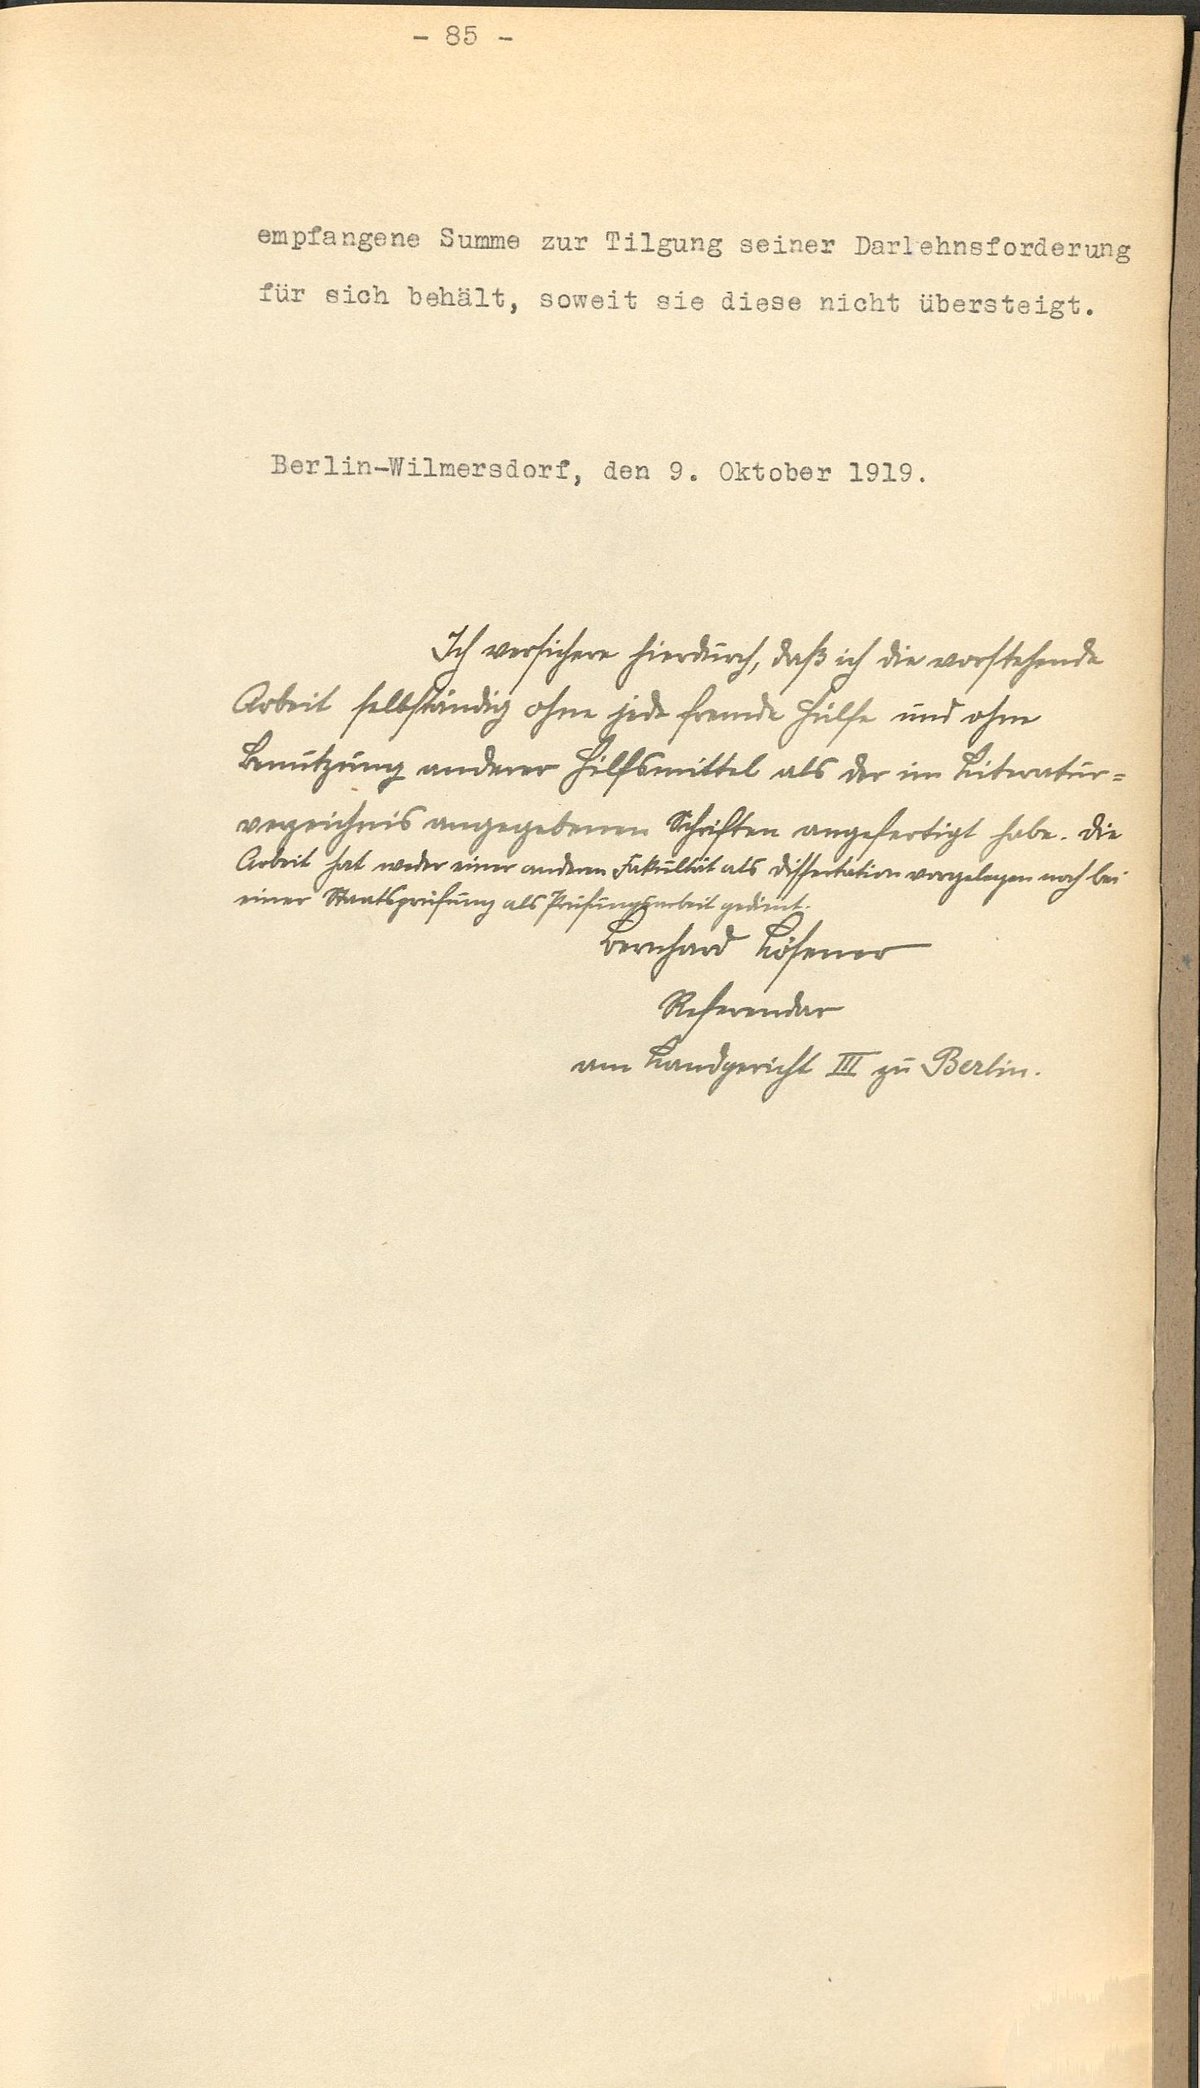 - 85 -
empfangene Summe zur Tilgung seiner Darlehnsforderung
für sich behält, soweit sie diese nicht übersteigt.
Berlin-Wilmersdorf, den 9. Oktober 1919.
Ich versichere hierdurch, daß ich die vorstehende
Arbeit selbständig ohne jede fremde Hülfe und ohne
Benutzung anderer Hilfsmittel als der im Literatur=
verzeichnis angegebenen Schriften angefertigt habe. Die
Arbeit hat weder einer anderen Fakultät als Dissertation vorgelegen noch bei
einer Staatsprüfung als Prüfungsarbeit gedient.
Bernhard Lösener
Referendar
am Landgericht III zu Berlin.